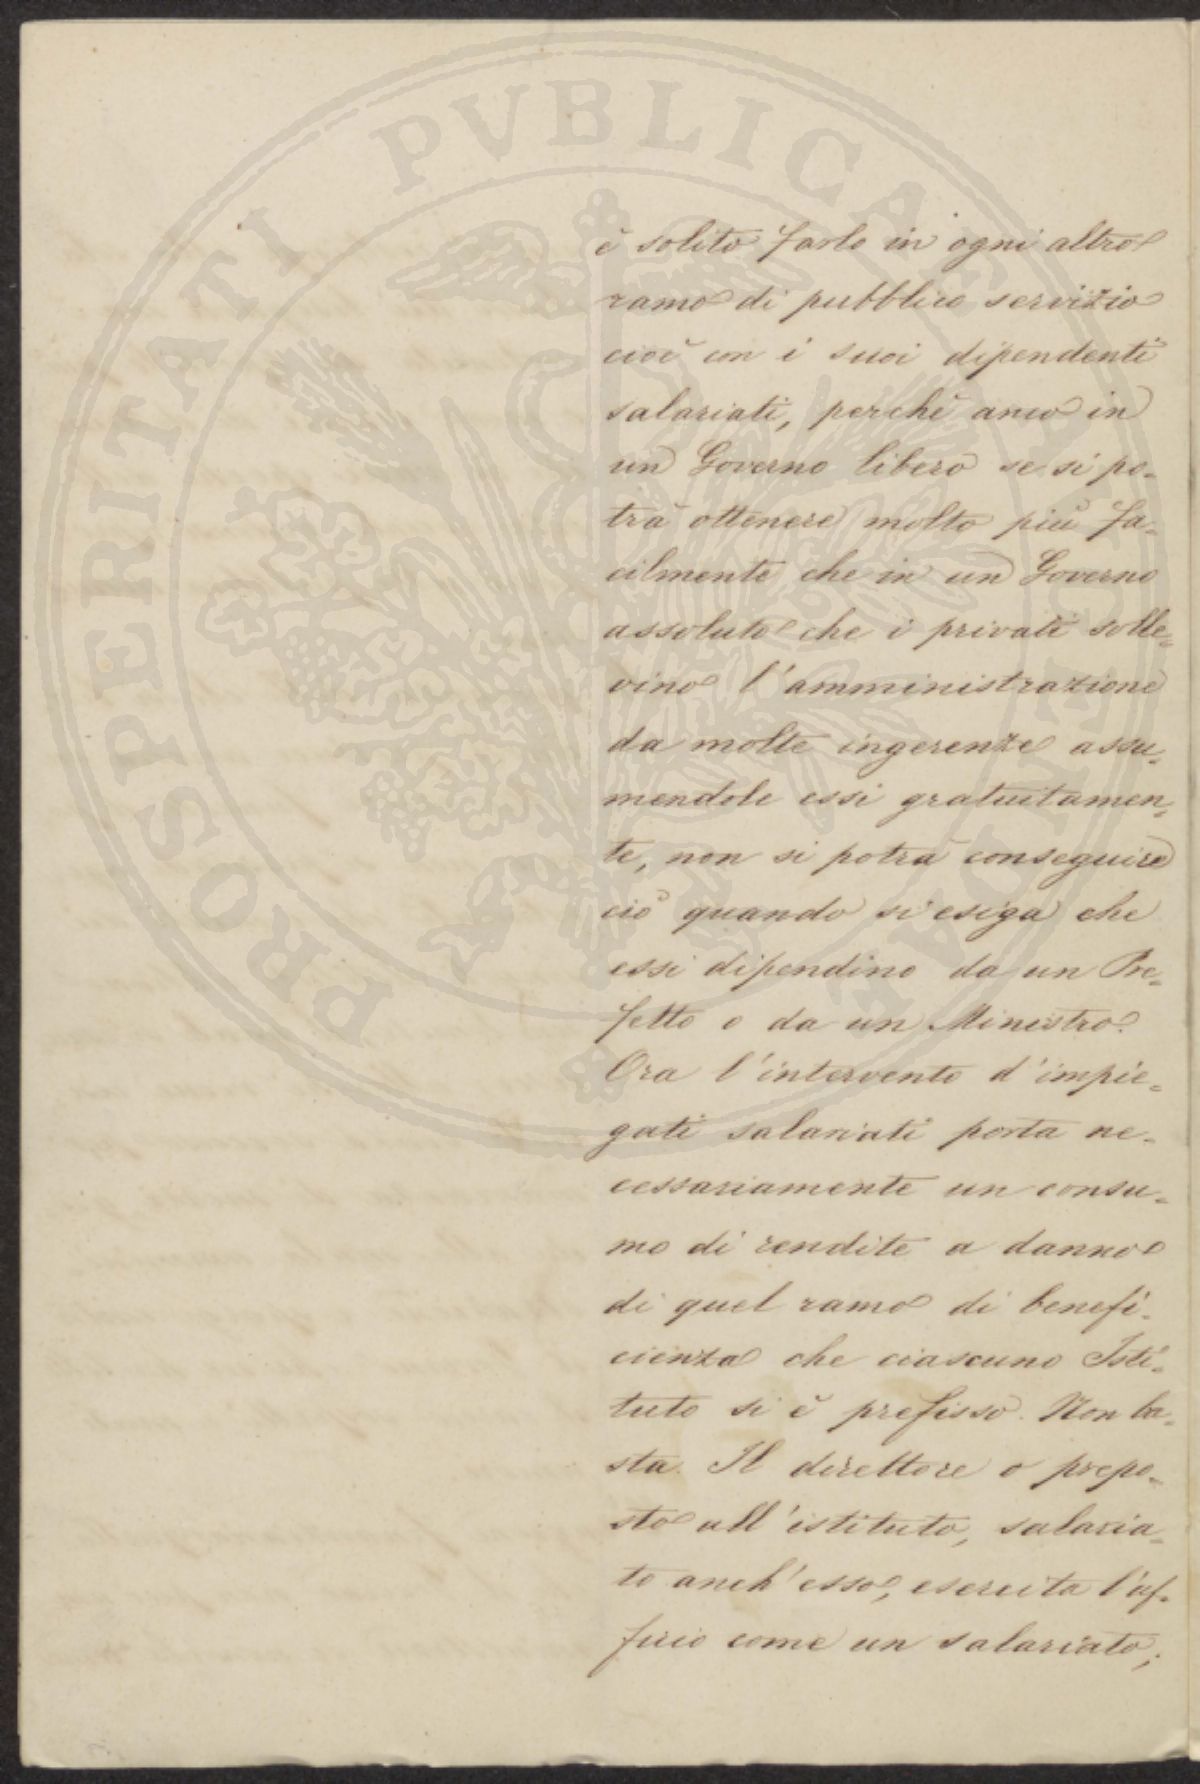 PROSPERITATI PVBLICAE AVGENDAE
è solito farlo in ogni altro
ramo di pubblico servizio
cioè con i suoi dipendenti
salariati, perchè anco in
un Governo libero se si po-
trà ottenere molto più fa-
cilmente che in un Governo
assoluto che i privati solle-
vino l'amministrazione
da molte ingerenze assu-
mendole essi gratuitamen-
te, non si potrà conseguire
ciò quando si esiga che
essi dipendino da un Pre-
fetto o da un Ministro.
Ora l'intervento d'impie-
gati salariati porta ne-
cessariamente un consu-
mo di rendite a danno
di quel ramo di benefi-
cienza che ciascuno Isti-
tuto si è prefisso. Non ba-
sta. Il direttore o prepo-
sto all'istituto, salaria-
to anch'esso, esercita l'uf-
ficio come un salariato,